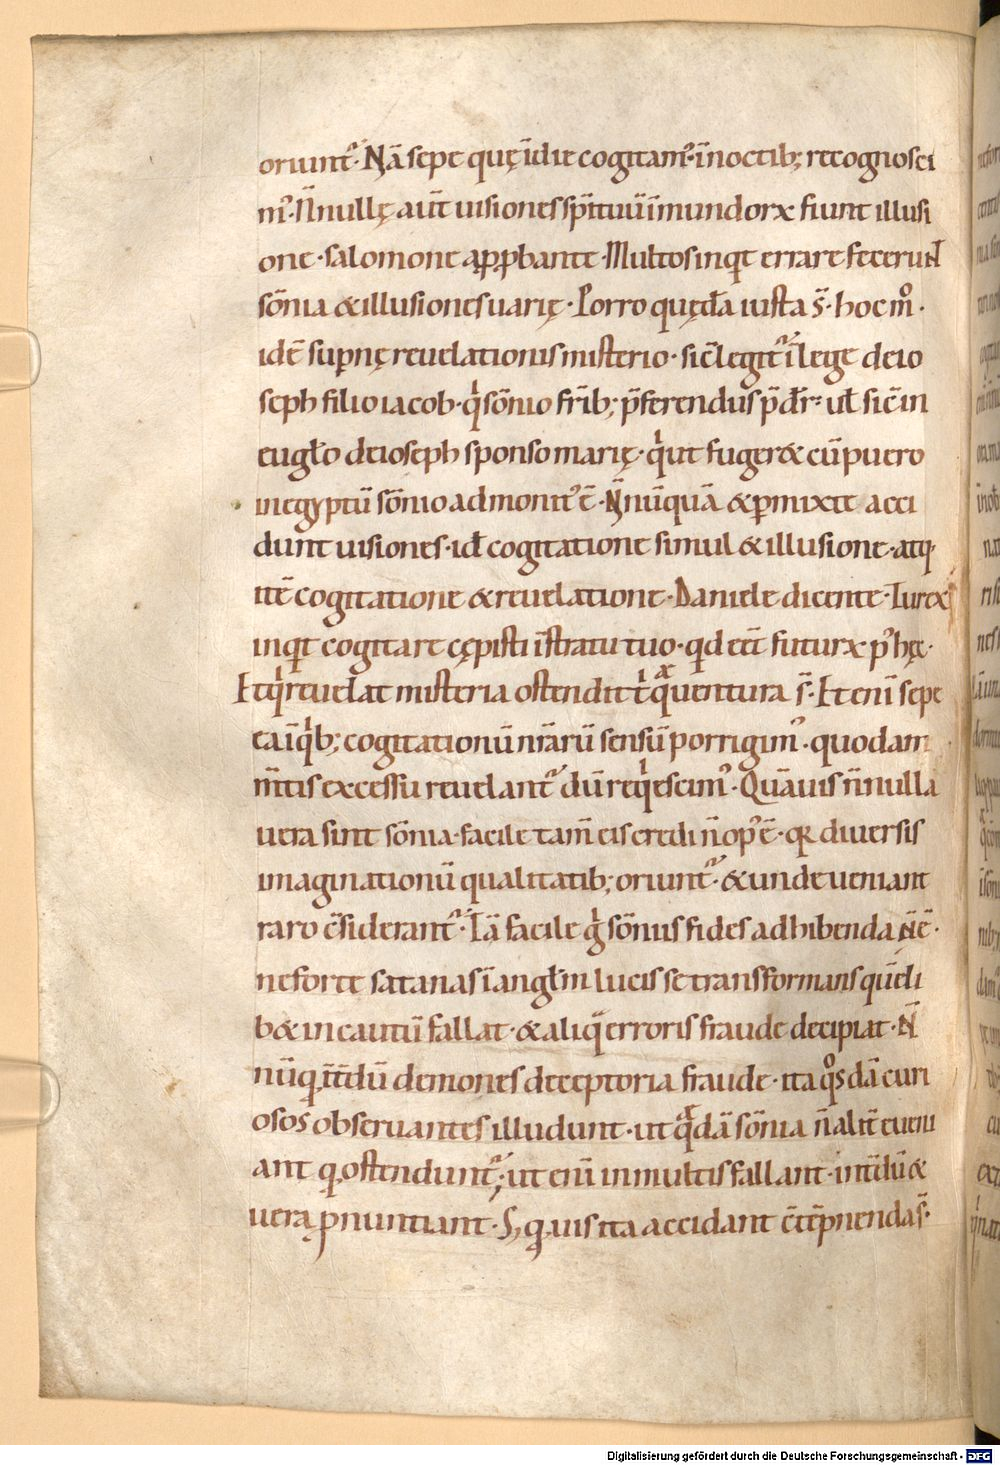 oriunt᷑· Nā sepe quę ī die cogitam᷒· in noctib; recognosci
m᷒· N̄nullę aut̄ uisiones sp̄ituū īmundorꝝ fiunt illusi
one· salomone ap̲p̲bante· Multos inq̇t errare fecerunt
sōnia & illusiones uarię· Porro quęda̅ iusta s̄· hoc m̊·
idē sup̲nę reuelationis misterio· sic̄ legit᷑ ī lege de io
seph filio iacob· qͥ sōnio fr̄ib; p̄ferendus p̄dr̄· ut̄ sic̄ in
eugl̄o de ioseph sponso marię· qͥ ut fuger& cū puero
in egyptū sōnio admonit᷒ ē· N̄nūquā & p̲mixte acci
dunt uisiones· id̄ cogitatione simul & illusione· atq·
itē cogitatione & reuelatione· Daniele dicente· Tu rex
inq̇t cogitare cępisti ī stratu tuo· qd eēt futurꝝ p᷒ hęc·
Et qͥ reuelat misteria ostendit t̄ qͣ uentura s̄· Et enī sepe
ea ī qͥb; cogitationū nr̄arū sensū porrigim᷒· quodam
m̄tis excessu reuelant᷑ dū reqͥescim᷒· Quāuis n̄nulla
uera sint sōnia· facile tam̄ eis credi n̄ op᷒ ē· qꝛ diuersis
imaginationū qualitatib; oriunt᷑· & unde ueniant
raro c̄siderant᷑· Iā facile gͥ sōniis fides adhibenda n̄ ē·
ne forte satanas ī angl̄m lucis se transformans quēli
b& incautū fallat· & aliq̄ erroris fraude decipiat· N̄
nūq̲ īt̄dū demones deceptoria fraude· ita q̊sdā curi
osos obseruantes illudunt· ut qͣdā sōnia n̄ alit̄ eueni
ant q̲ ostendunt᷑; ut enī in multis fallant· int̄dū &
uera p̲nuntiant· S; q̲uis ita accidant c̄tēpnenda s̄·
Digitalisierung gefördert durch die Deutsche Forschungsgemeinschaft - DFG